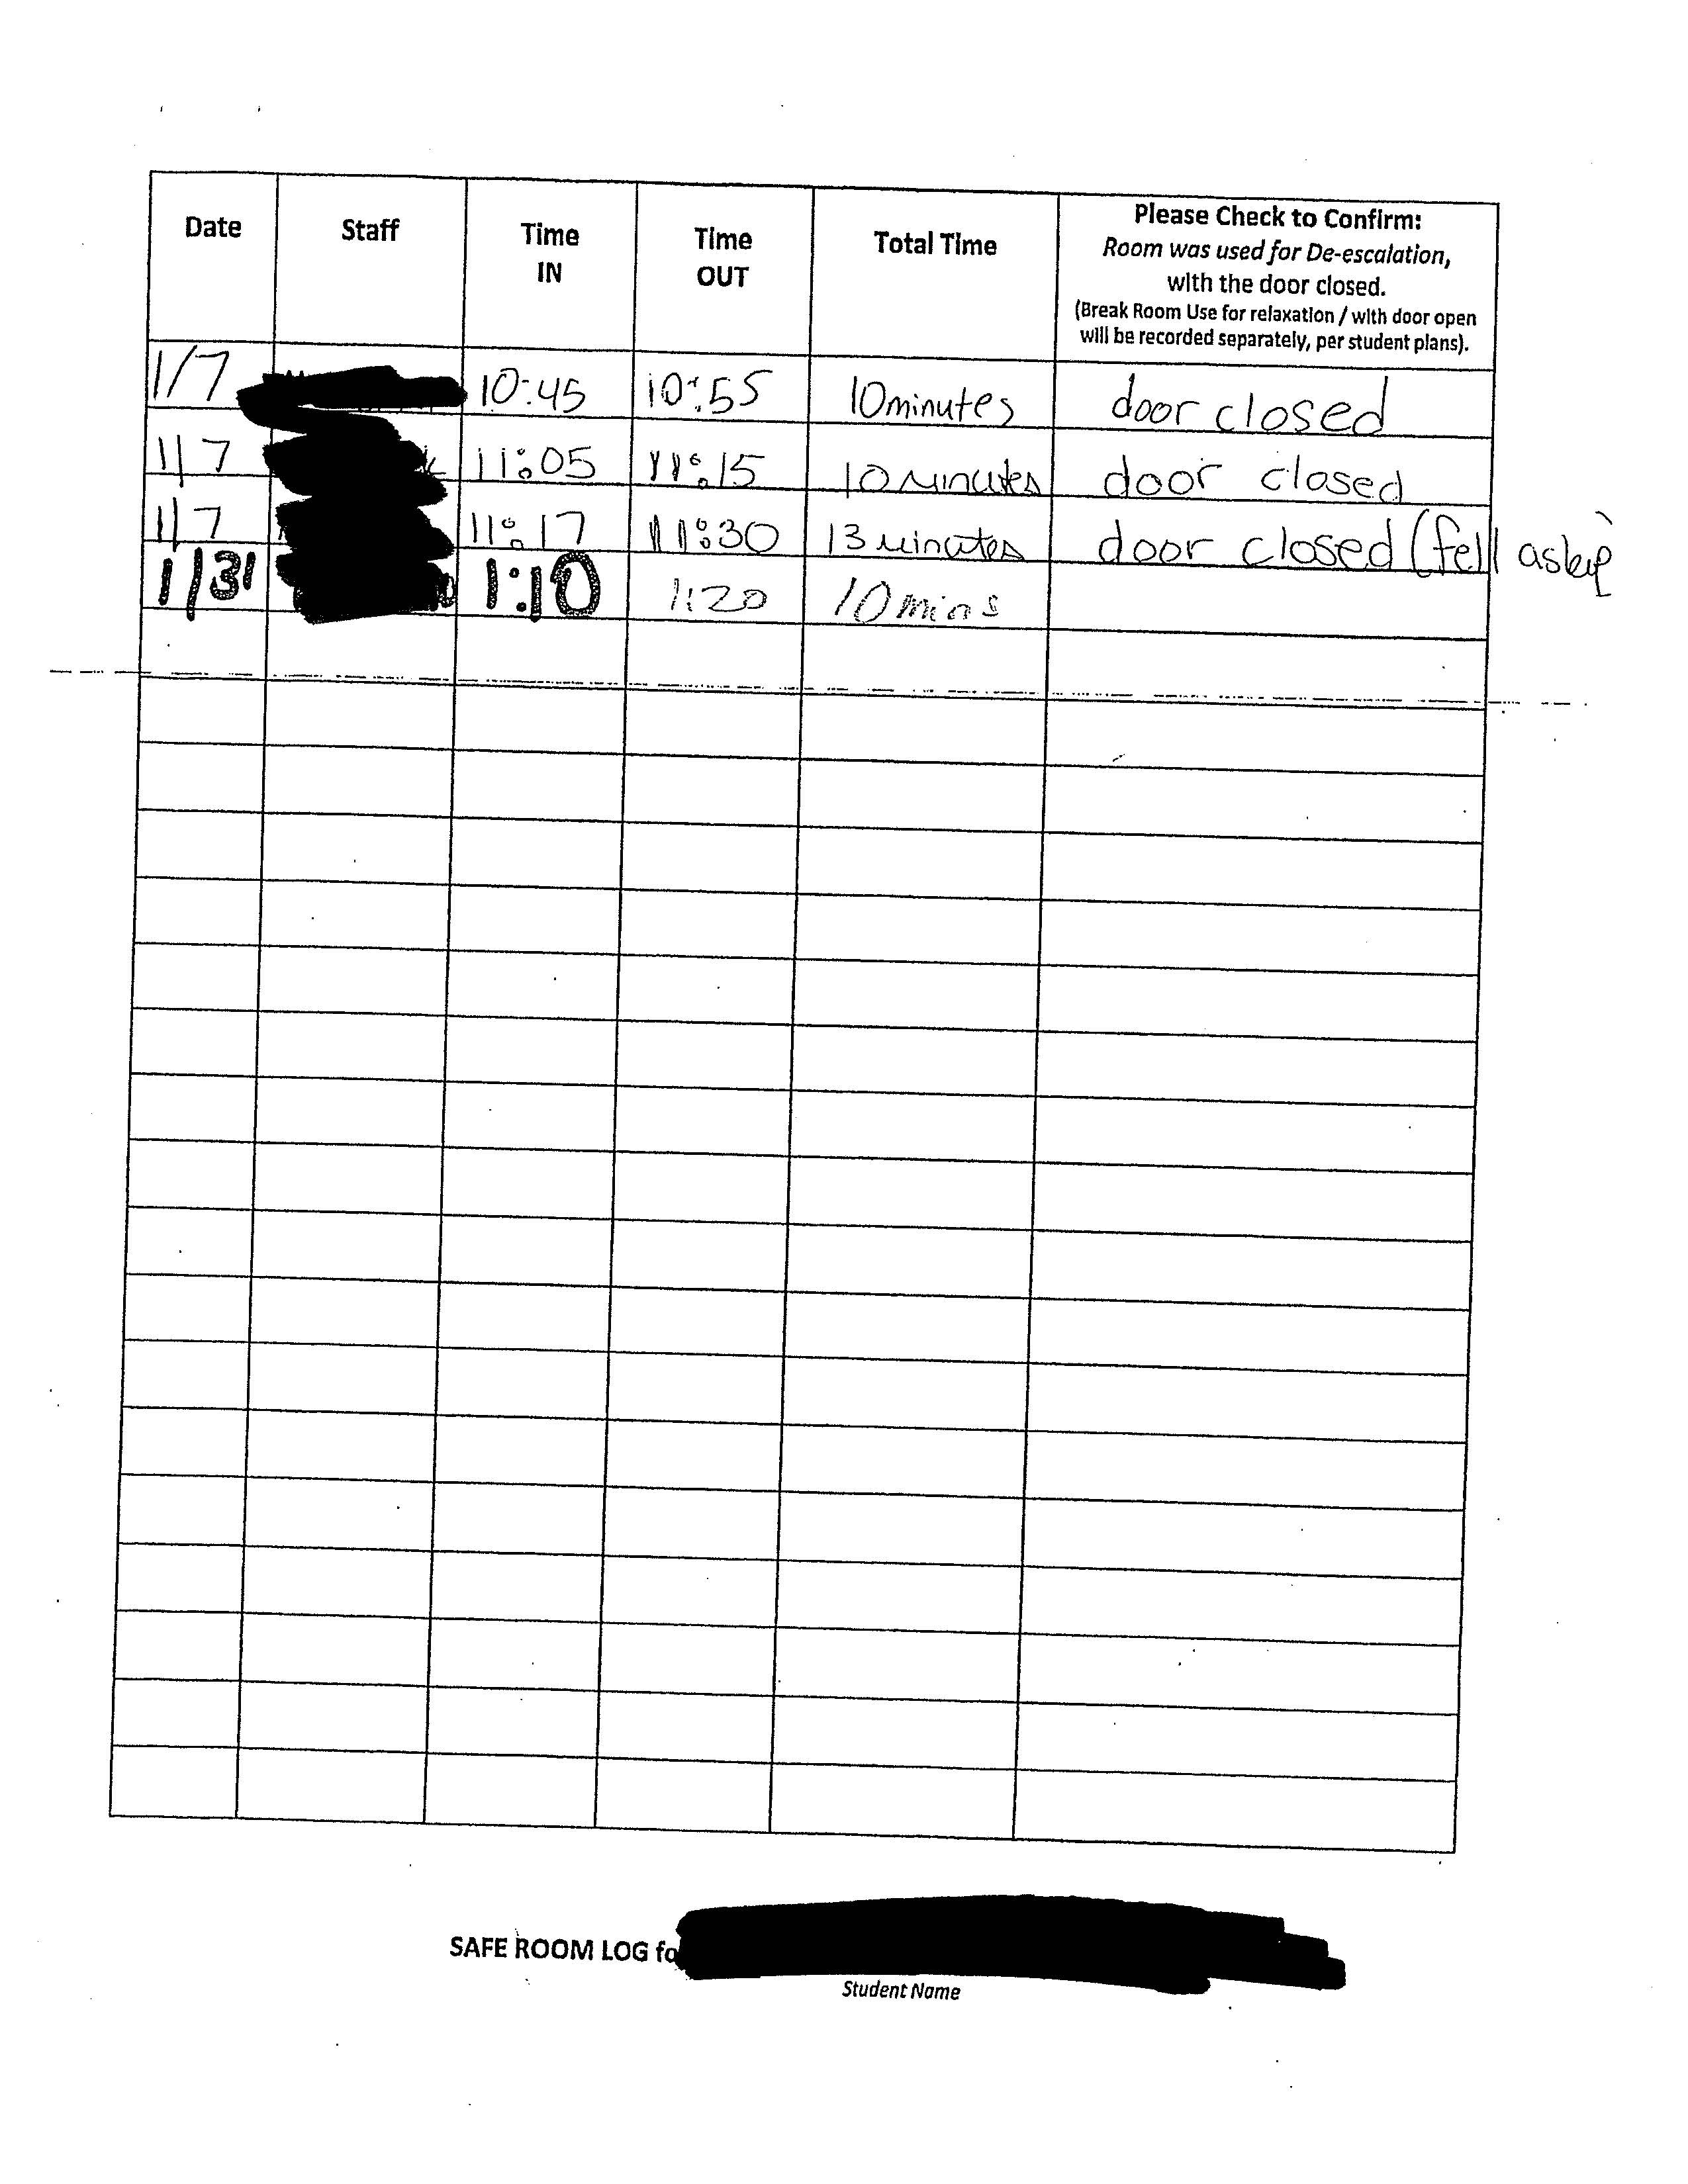 Date Staff Time IN Time OUT Total Time Please Check to Confirm:
Room was used for De-escalation,
with the door closed.
(Break Room Use for relaxation / with door open
will be recorded separately, per student plans).
1/7 10:45 10:55 10 minutes door closed
1/7 11:05 11:15 10 minutes door closed
1/7 11:17 11:30 13 minutes door closed (fell asleep)
1/31 1:10 1:20 10 mins
SAFE ROOM LOG fo
Student Name